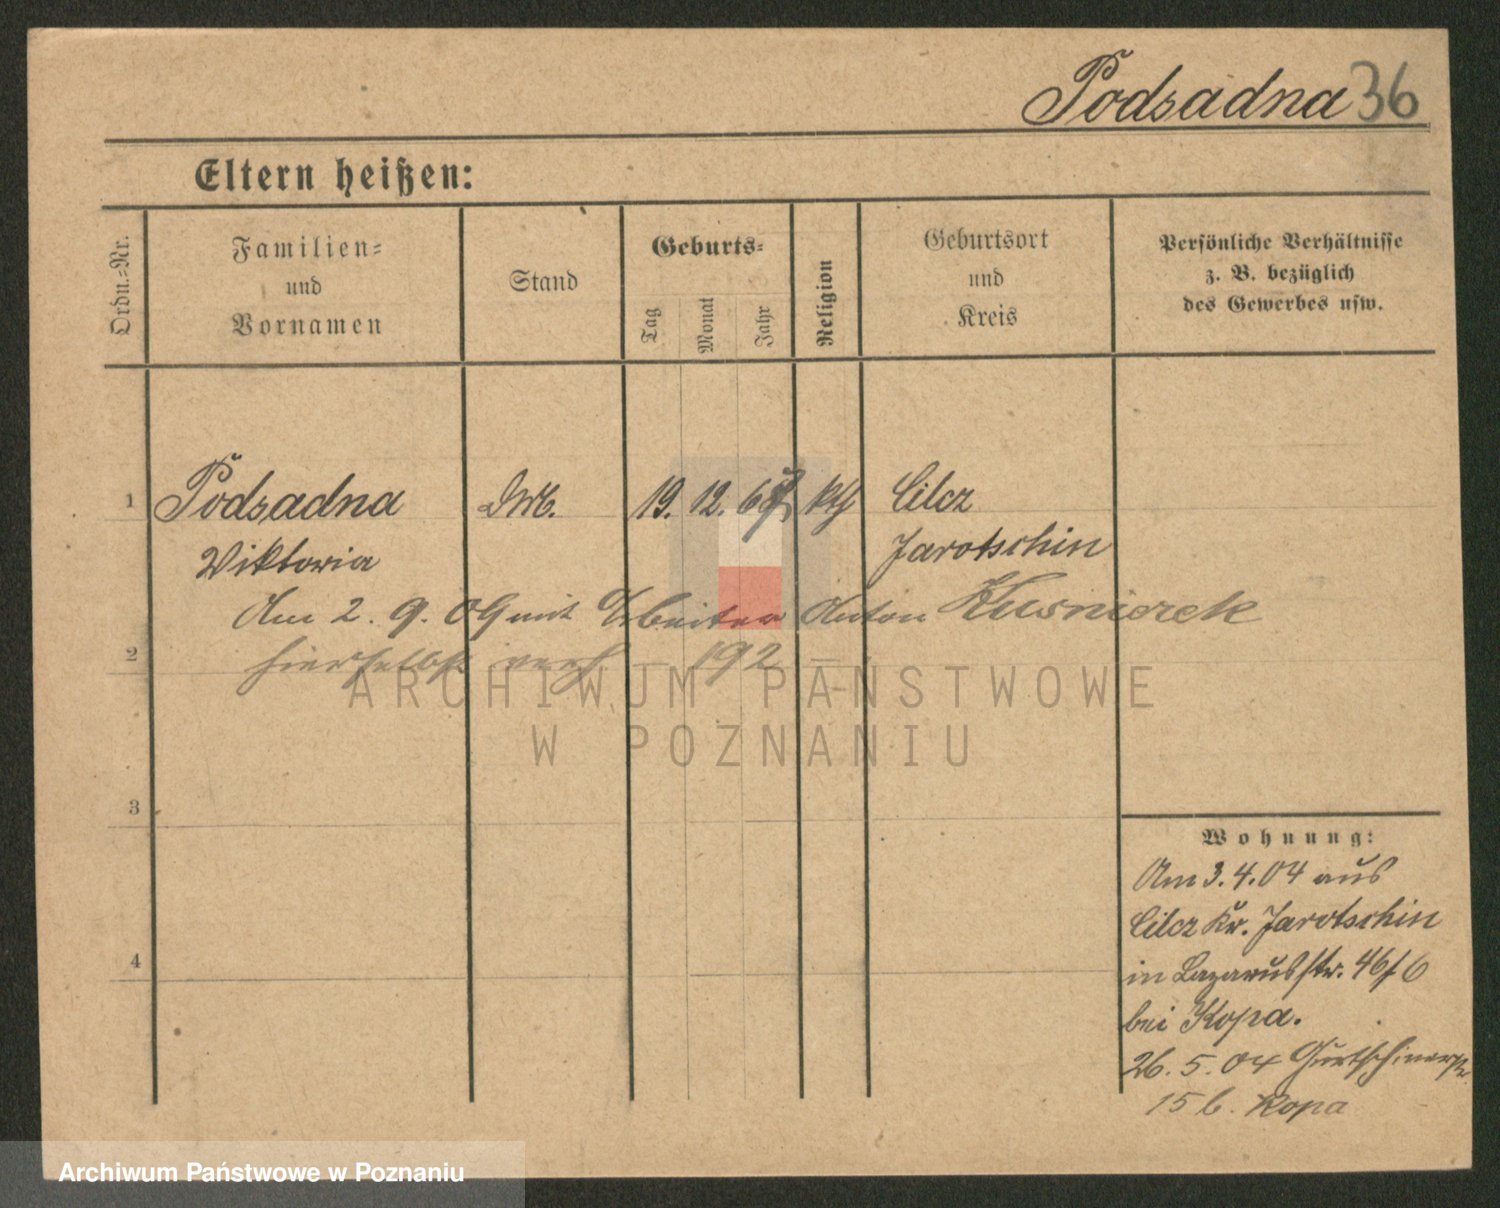 Podsadna 36
Eltern heißen:
Ordn.-Nr.
Familien-
und
Vornamen
Stand
Geburts-
Tag
Monat
Jahr
Religion
Geburtsort
und
Kreis
Persönliche Verhältnisse
z. B. bezüglich
des Gewerbes usw.
1 Podsadna 19. 12. kth Cilcz
Viktoria Jarotschin
Am 2. 9. 09 mit Arbeiter Anton Kusnierek
2 hierselbst verh 192
ARCHIWUM PAŃSTWOWE
W POZNANIU
3
Wohnung:
Am 3.4.04 aus
Cilcz Kr. Jarotschin
4
in Lazarusstr. 46/6
bei Kopa.
26.5.04 Gurtschinerstr.
15 b. Kopa
Archiwum Państwowe w Poznaniu